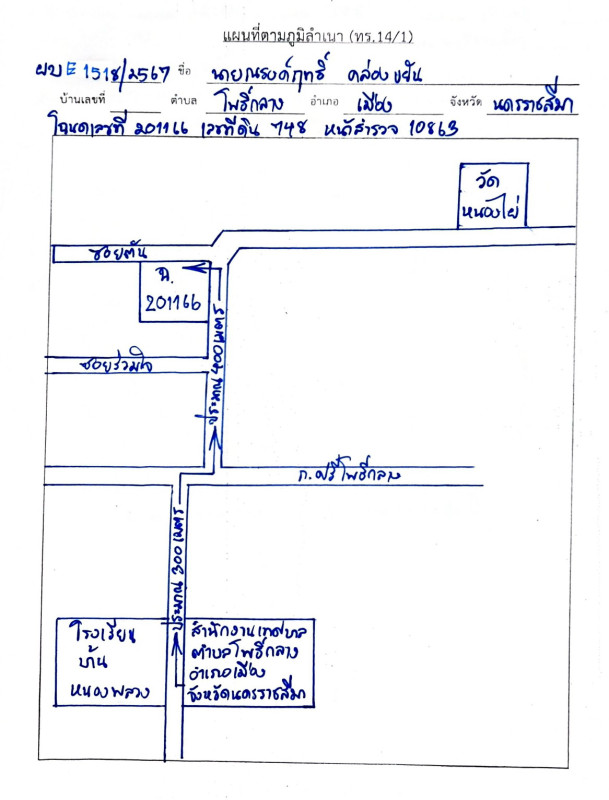 แผนที่ตามภูมิลำเนา (ทร.14/1)
ผบE 1518/2567 ชื่อ นายณรงค์ฤทธิ์ คล่องขยัน
บ้านเลขที่ ตำบล โพธิ์กลาง อำเภอ เมือง จังหวัด นครราชสีมา
โฉนดเลขที่ 201166 เลขที่ดิน 748 หน้าสำรวจ 10863
วัด
หนองไผ่
ซอยตัน
ฉ.
201166
ประมาณ 400 เมตร
ซอยร่วมใจ
ถ.ศรีโพธิ์กลาง
ประมาณ 300 เมตร
โรงเรียน
บ้าน
หนองพลวง
สำนักงานเทศบาล
ตำบลโพธิ์กลาง
อำเภอเมือง
จังหวัดนครราชสีมา